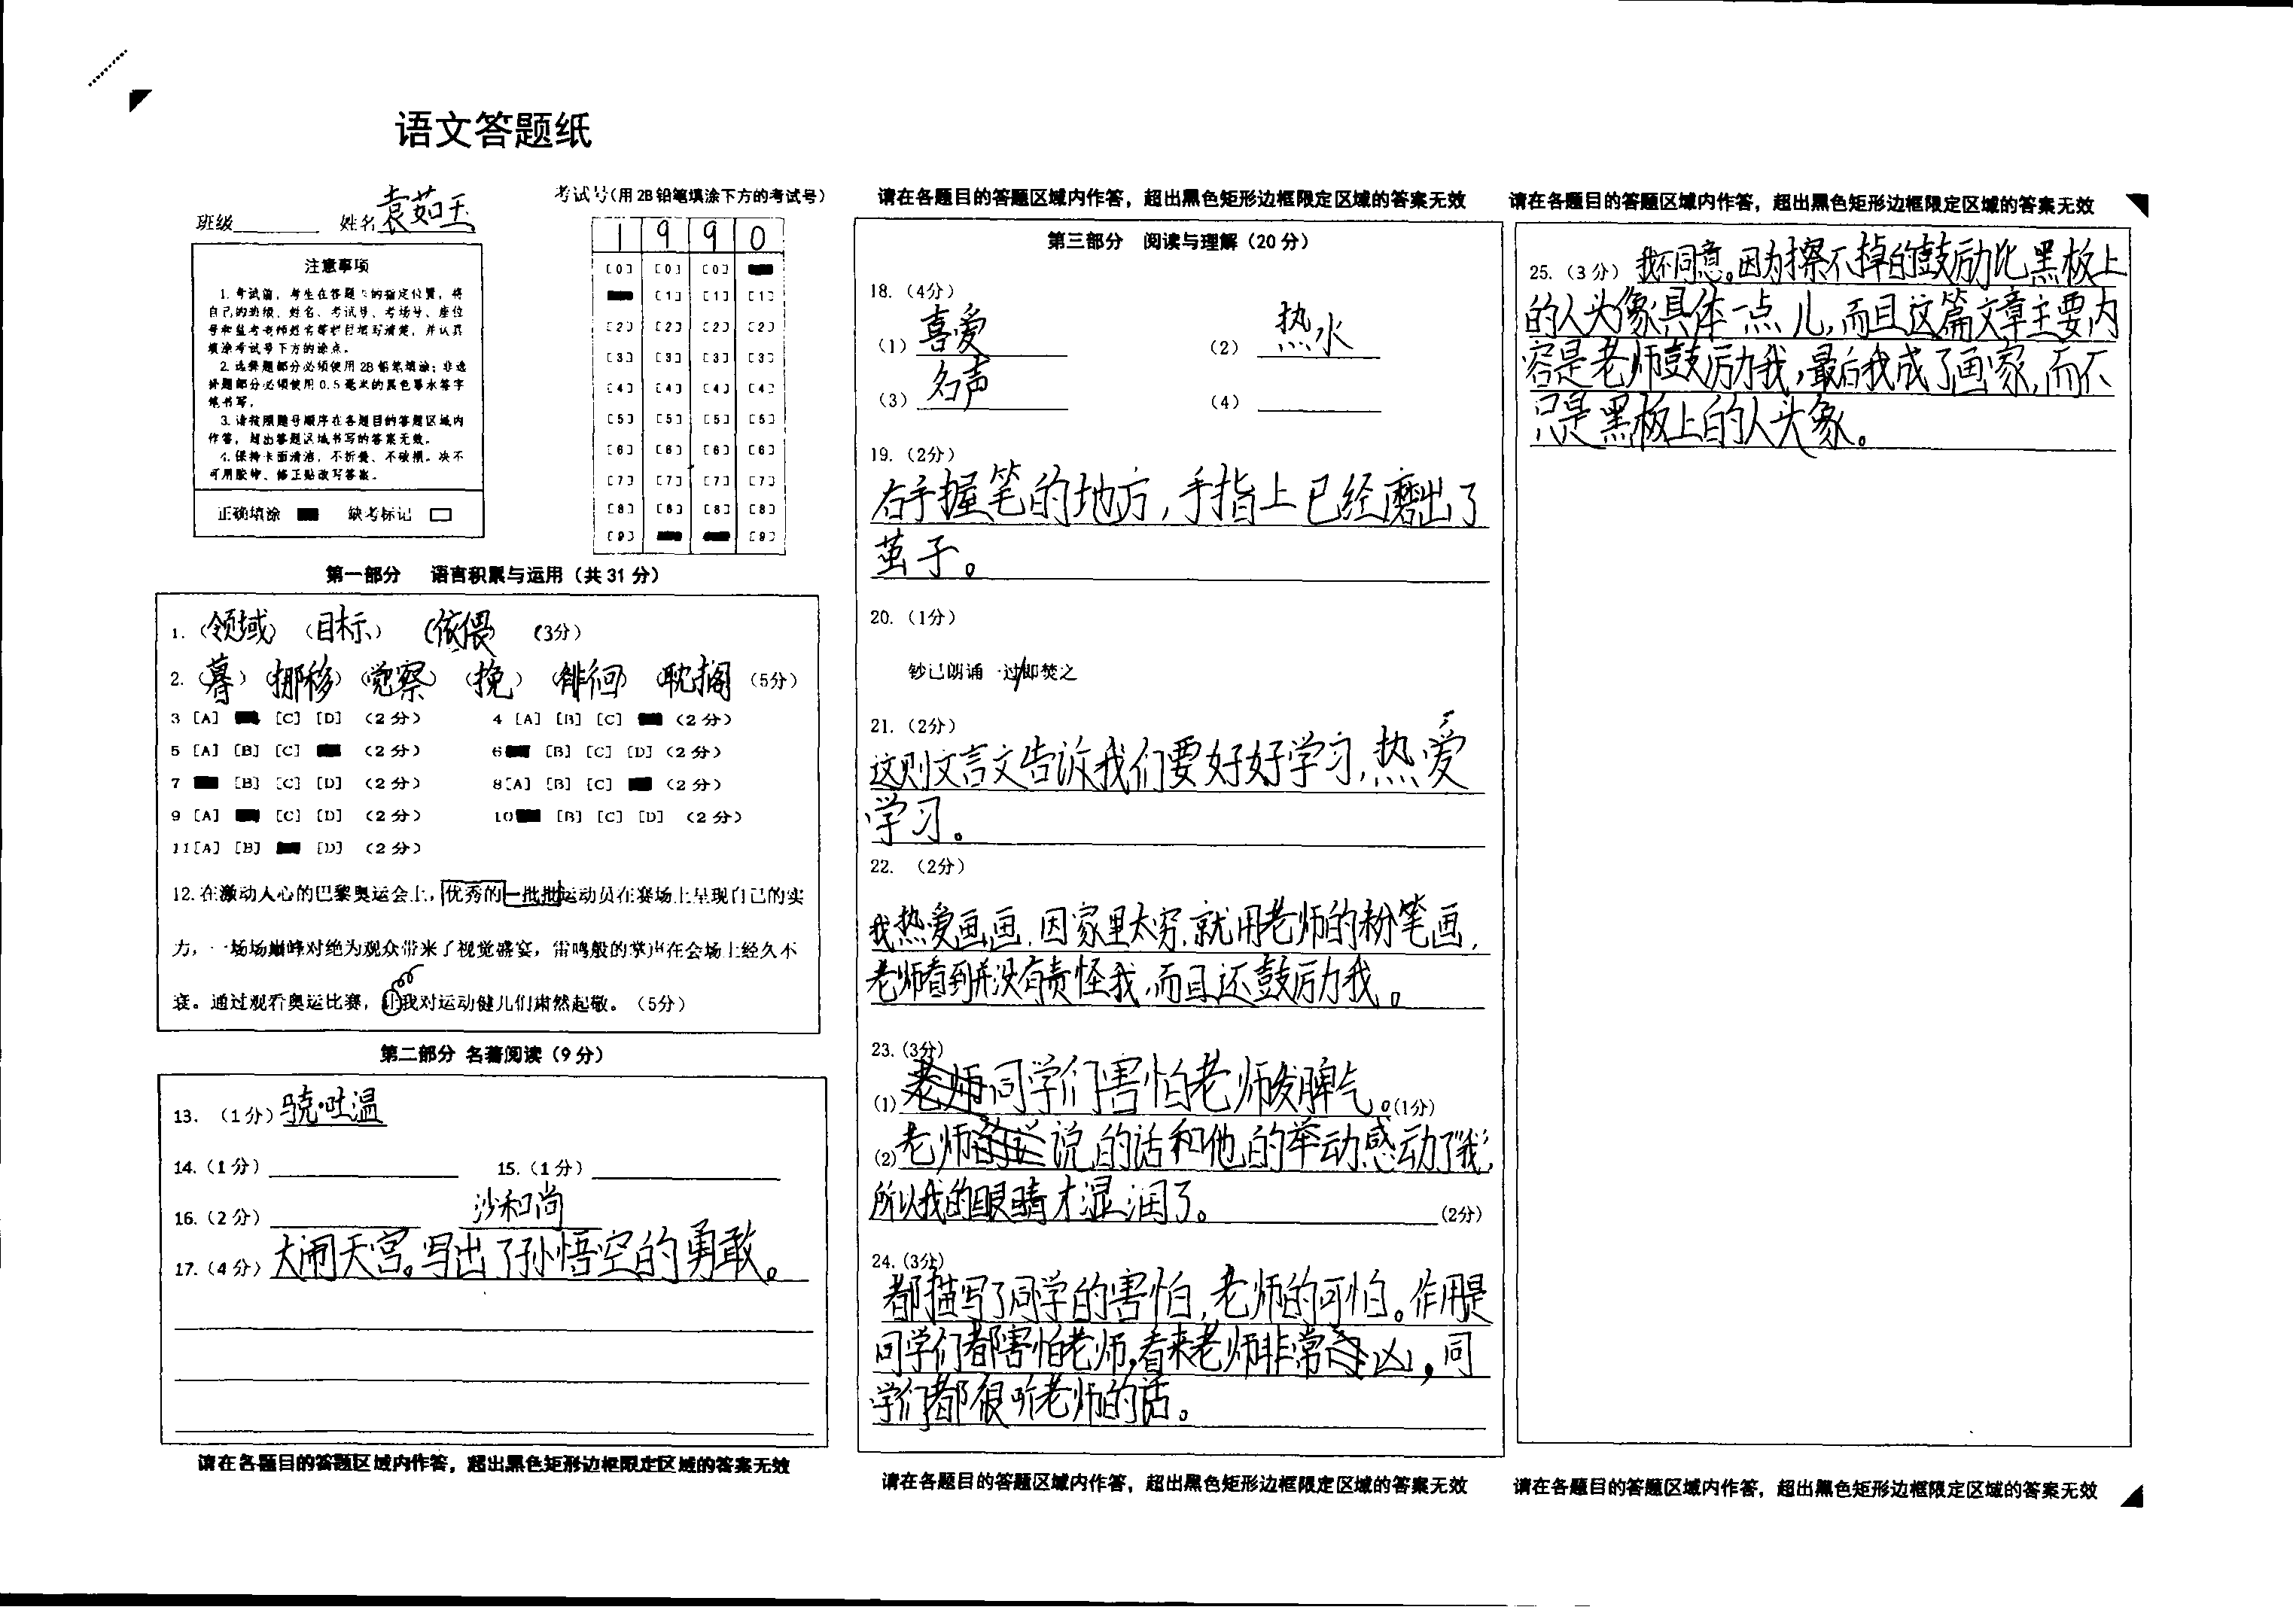 语文答题纸
班级 姓名 袁茹玉
考试号(用 2B 铅笔填涂下方的考试号)
1 9 9 0
[0] [0] [0]
[1] [1] [1]
[2] [2] [2] [2]
[3] [3] [3] [3]
[4] [4] [4] [4]
[5] [5] [5] [5]
[6] [6] [6] [6]
[7] [7] [7] [7]
[8] [8] [8] [8]
[9] [9]
注意事项
1. 考试前，考生在答题 的指定位置，将
自己的班级、姓名、考试号、考场号、座位
号和监考老师姓名等栏目填写清楚，并认真
填涂考试号下方的涂点。
2. 选择题部分必须使用 2B 铅笔填涂；非选
择题部分必须使用 0.5 毫米的黑色墨水签字
笔书写。
3. 请按照题号顺序在各题目的答题区域内
作答，超出答题区域书写的答案无效。
4. 保持卡面清洁，不折叠、不破损。决不
可用胶带、修正贴改写答案。
正确填涂 缺考标记
第一部分 语言积累与运用（共 31 分）
1.（领域）（目标）（依偎）（3分）
2.（暮）（挪移）（觉察）（挽）（徘徊）（耽搁）（5分）
3 [A] [C] [D] （2 分） 4 [A] [B] [C] （2 分）
5 [A] [B] [C] （2 分） 6 [B] [C] [D]（2 分）
7 [B] [C] [D] （2 分） 8[A] [B] [C] （2 分）
9 [A] [C] [D] （2 分） 10 [B] [C] [D] （2 分）
11[A] [B] [D] （2 分）
12. 在激动人心的巴黎奥运会上，优秀的一批批运动员在赛场上呈现自己的实
力，一场场巅峰对绝为观众带来了视觉盛宴，雷鸣般的掌声在会场上经久不
衰。通过观看奥运比赛，让我对运动健儿们肃然起敬。（5分）
第二部分 名著阅读（9 分）
13. （1 分）骁·吐温
14.（1 分） 15.（1 分）
16.（2 分） 沙和尚
17.（4 分）大闹天宫。写出了孙悟空的勇敢。
请在各题目的答题区域内作答，超出黑色矩形边框限定区域的答案无效
请在各题目的答题区域内作答，超出黑色矩形边框限定区域的答案无效
第三部分 阅读与理解（20 分）
18.（4分）
（1）喜爱 （2）热水
（3）名声 （4）
19.（2分）
右手握笔的地方，手指上已经磨出了
茧子。
20.（1分）
钞已朗诵一过/即焚之
21.（2分）
这则文言文告诉我们要好好学习，热爱
学习。
22. （2分）
我热爱画画，因家里太穷，就用老师的粉笔画，
老师看到并没有责怪我，而且还鼓厉力我。
23.（3分）
(1) 老师同学们害怕老师发脾气。(1分)
(2) 老师说的话和他的举动感动了“我”，
所以我的眼睛才湿润了。 (2分)
24.（3分）
都描写了同学的害怕，老师的可怕。作用是
同学们都害怕老师，看来老师非常凶，同
学们都很听老师的话。
请在各题目的答题区域内作答，超出黑色矩形边框限定区域的答案无效
请在各题目的答题区域内作答，超出黑色矩形边框限定区域的答案无效
25.（3 分）我不同意。因为擦不掉的鼓励比黑板上
的人头像具体一点儿，而且这篇文章主要内
容是老师鼓励我，最后我成了画家，而不
只是黑板上的人头象。
请在各题目的答题区域内作答，超出黑色矩形边框限定区域的答案无效